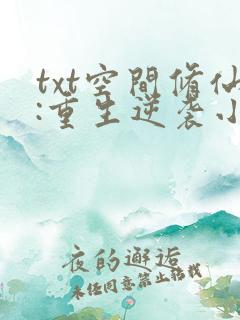 txt空間脩仙
:重生逆袭小
夜的邂逅
未经同意禁止转载